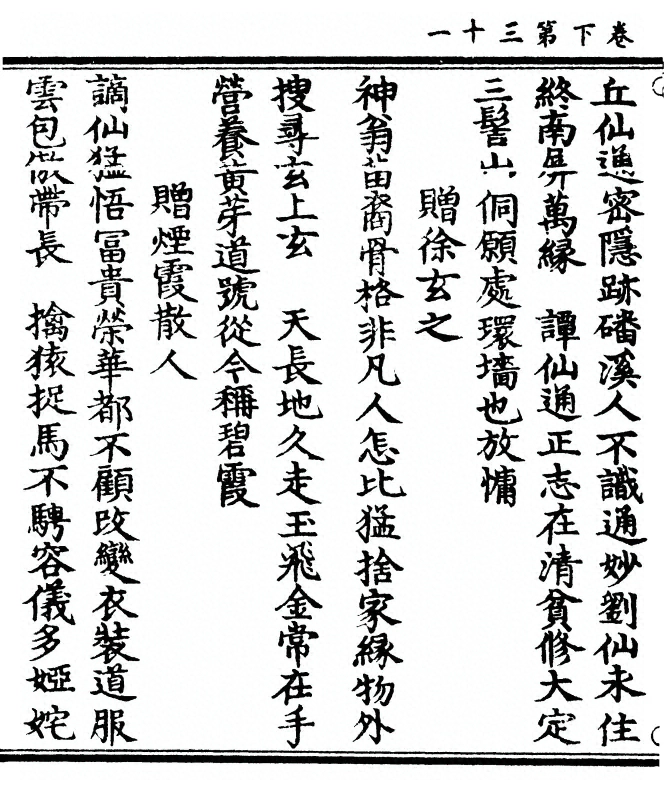 卷下第三十一
丘仙通密隱跡磻溪人不識通妙劉仙未住
終南屏萬緣　譚仙通正志在清貧修大定
三髻山侗願處環墻也放慵
贈徐玄之
神翁苗裔骨格非凡人怎比猛捨家緣物外
搜尋玄上玄　天長地久走玉飛金常在手
營養黃芽道號從今稱碧霞
贈煙霞散人
謫仙猛悟冨貴榮華都不顧改變衣裝道服
雲包䈰帶長　擒猿捉馬不騁容儀多婭姹